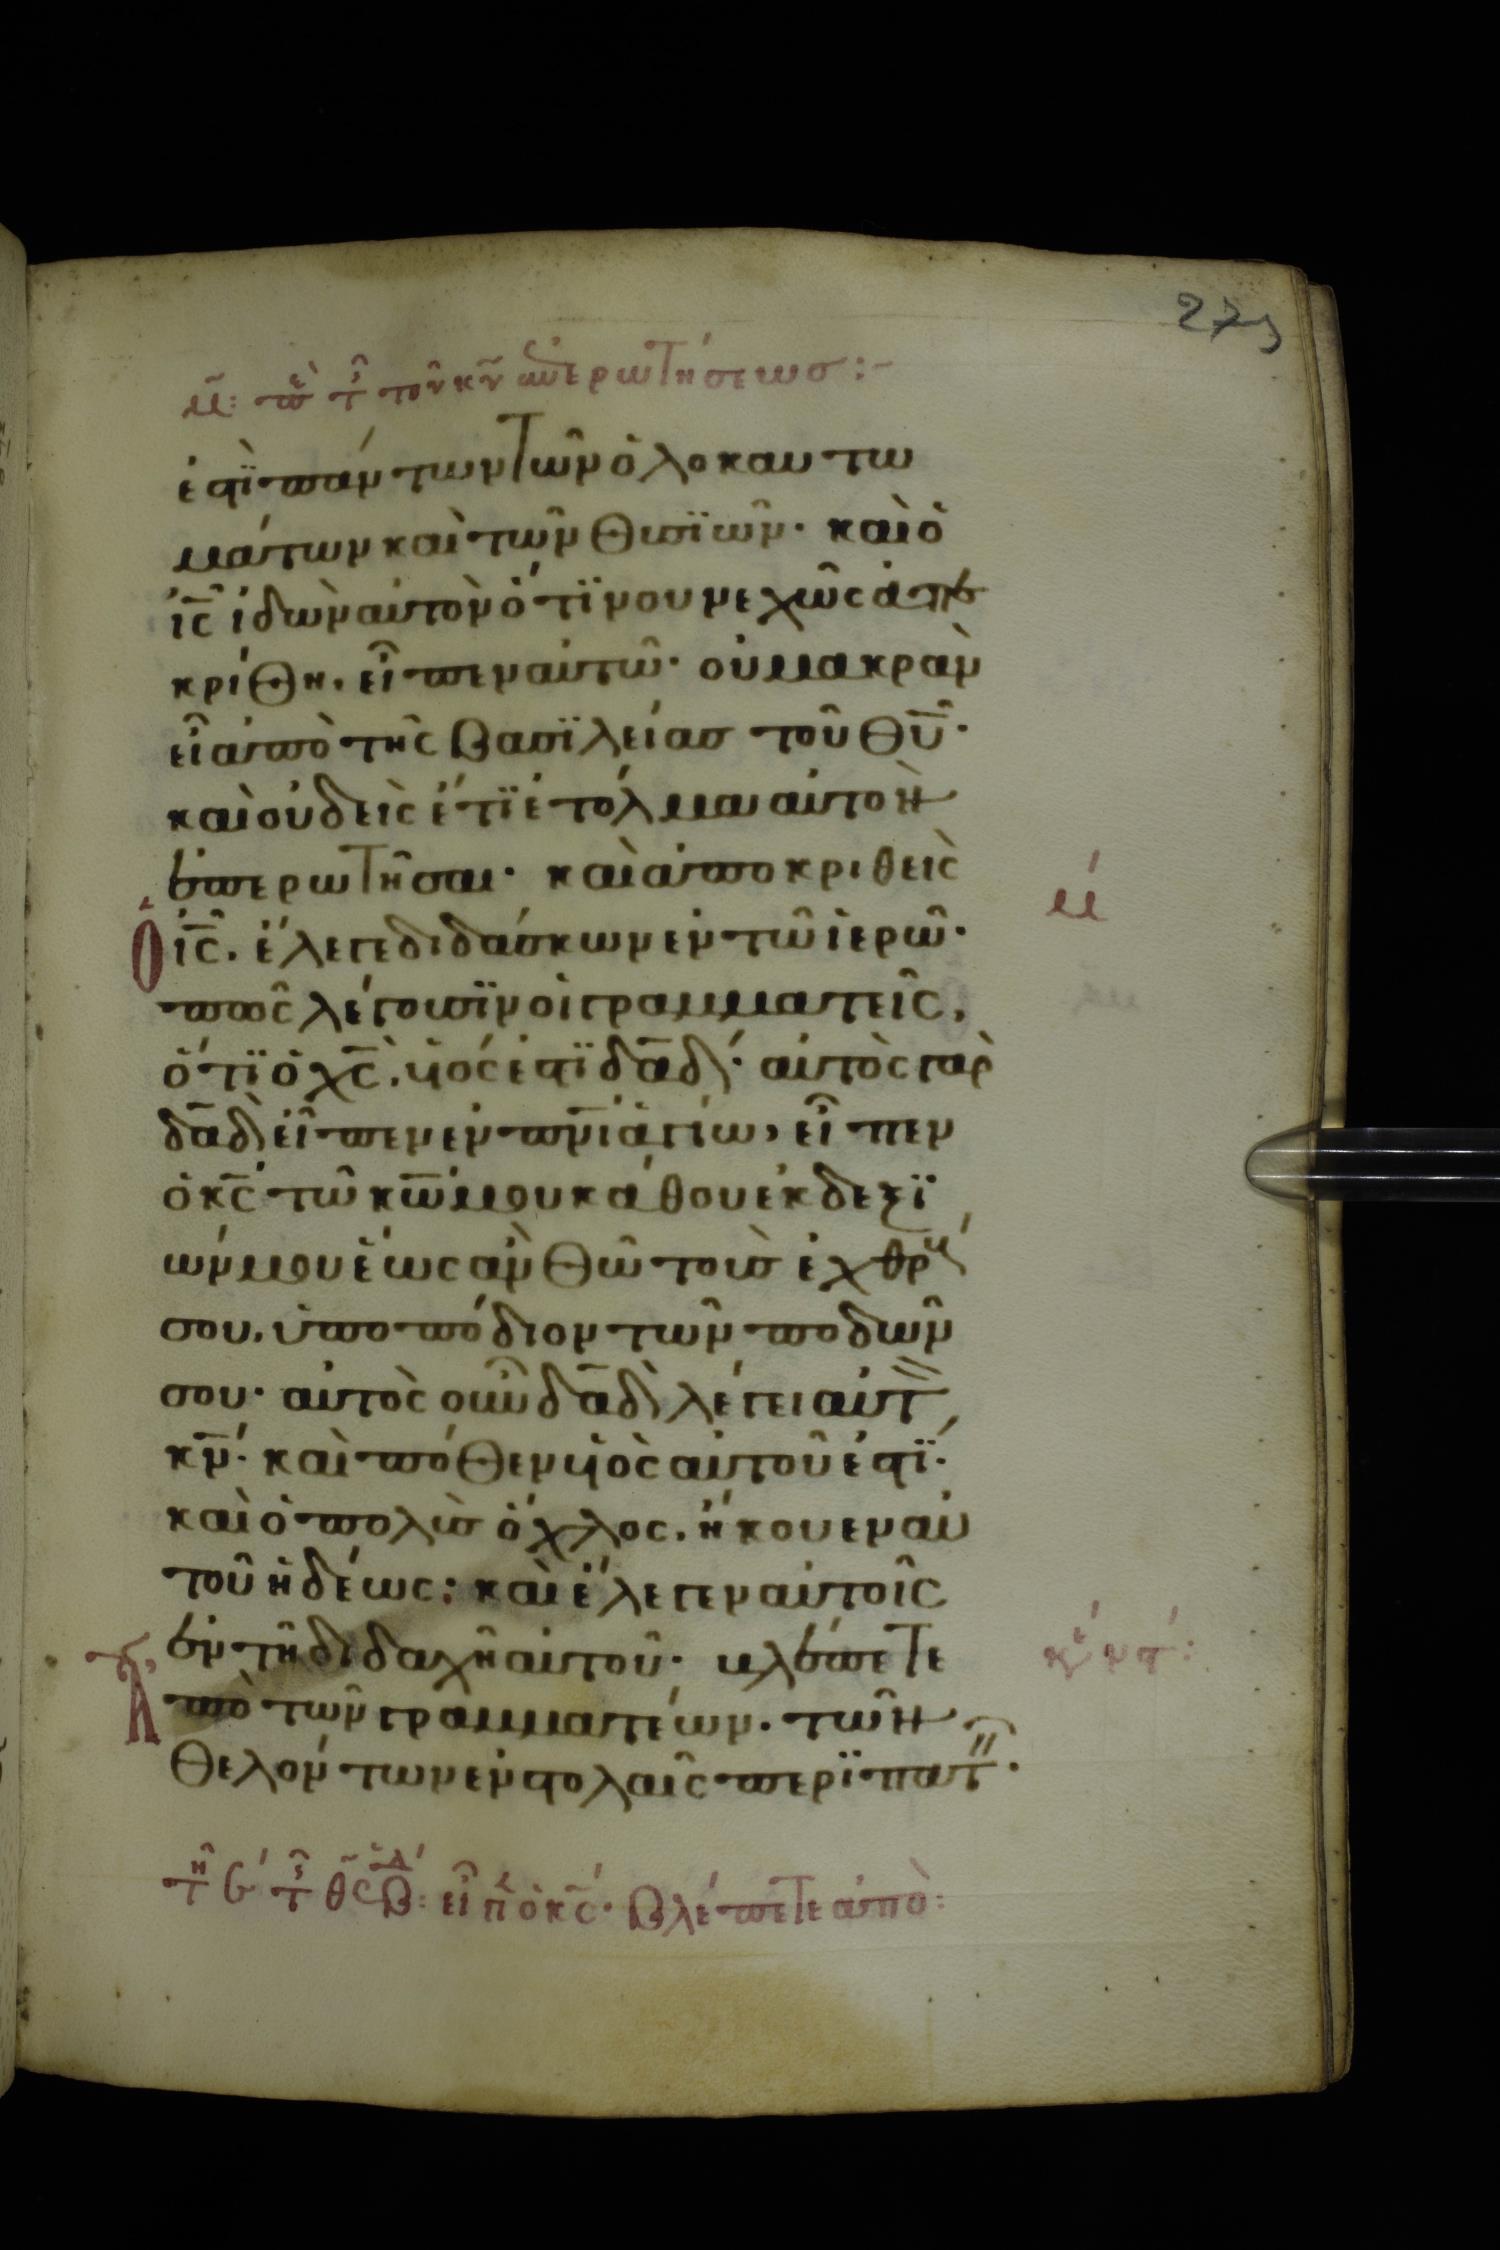 275
μ̃: πὲ τ τοῦ κῦ ἐπερωτήσεως:~
ἐστϊ πάντων τῶν ὁλοκαυτω
μάτων καὶ τῶν θυσϊῶν· καὶ ὁ
ἰς̅ ἰδὼν αὐτὸν ὅτϊ νουνεχῶς ἀπε
κρίθη. εἶπεν αὐτῶ· οὐ μακρὰν
εἶ ἀπὸ τῆς βασϊλείας τοῦ θυ̅·
καὶ οὐδεὶς ἔτϊ ἐτόλμα αὐτὸν
ἐπερωτῆσαι· καὶ ἀποκριθεὶς
ὁ ἰς̅. ἔλεγε διδάσκων ἐν τῶ ἱερῶ·
μά
πῶς λέγουσϊν οἱ γραμματεῖς,
ὅτϊ ὁ χς̅. υἱός ἐστϊ δα̅δ· αὐτὸς γὰρ
δα̅δ εἶπεν ἐν πνι̅ ἁγίω, εἶπεν
ὁ κς̅ τῶ κω̅ μου κάθου ἐκ δεξϊ
ῶν μου ἕως ἂν θῶ τοὺς ἐχθρούς
σου. ὑποπόδιον τῶν ποδῶν
σου· αὐτὸς οὖν δα̅δ λέγει αὐτὸν
κν̅· καὶ πόθεν υἱὸς αὐτοῦ ἐστϊ·
καὶ ὁ πολὺς ὄχλος. ἤκουεν αὐ
τοῦ ἡδέως: καὶ ἔλεγεν αὐτοῖς
ἐν τῆ διδαχῆ αὐτοῦ· βλέπετε
ἀπὸ τῶν γραμματέων. τῶν
θελόντων ἐν στολαῖς περϊπατεῖν·
τῆ ϛ τ θς β: εἶπ ὁ κς̅· βλέπετε ἀπὸ: